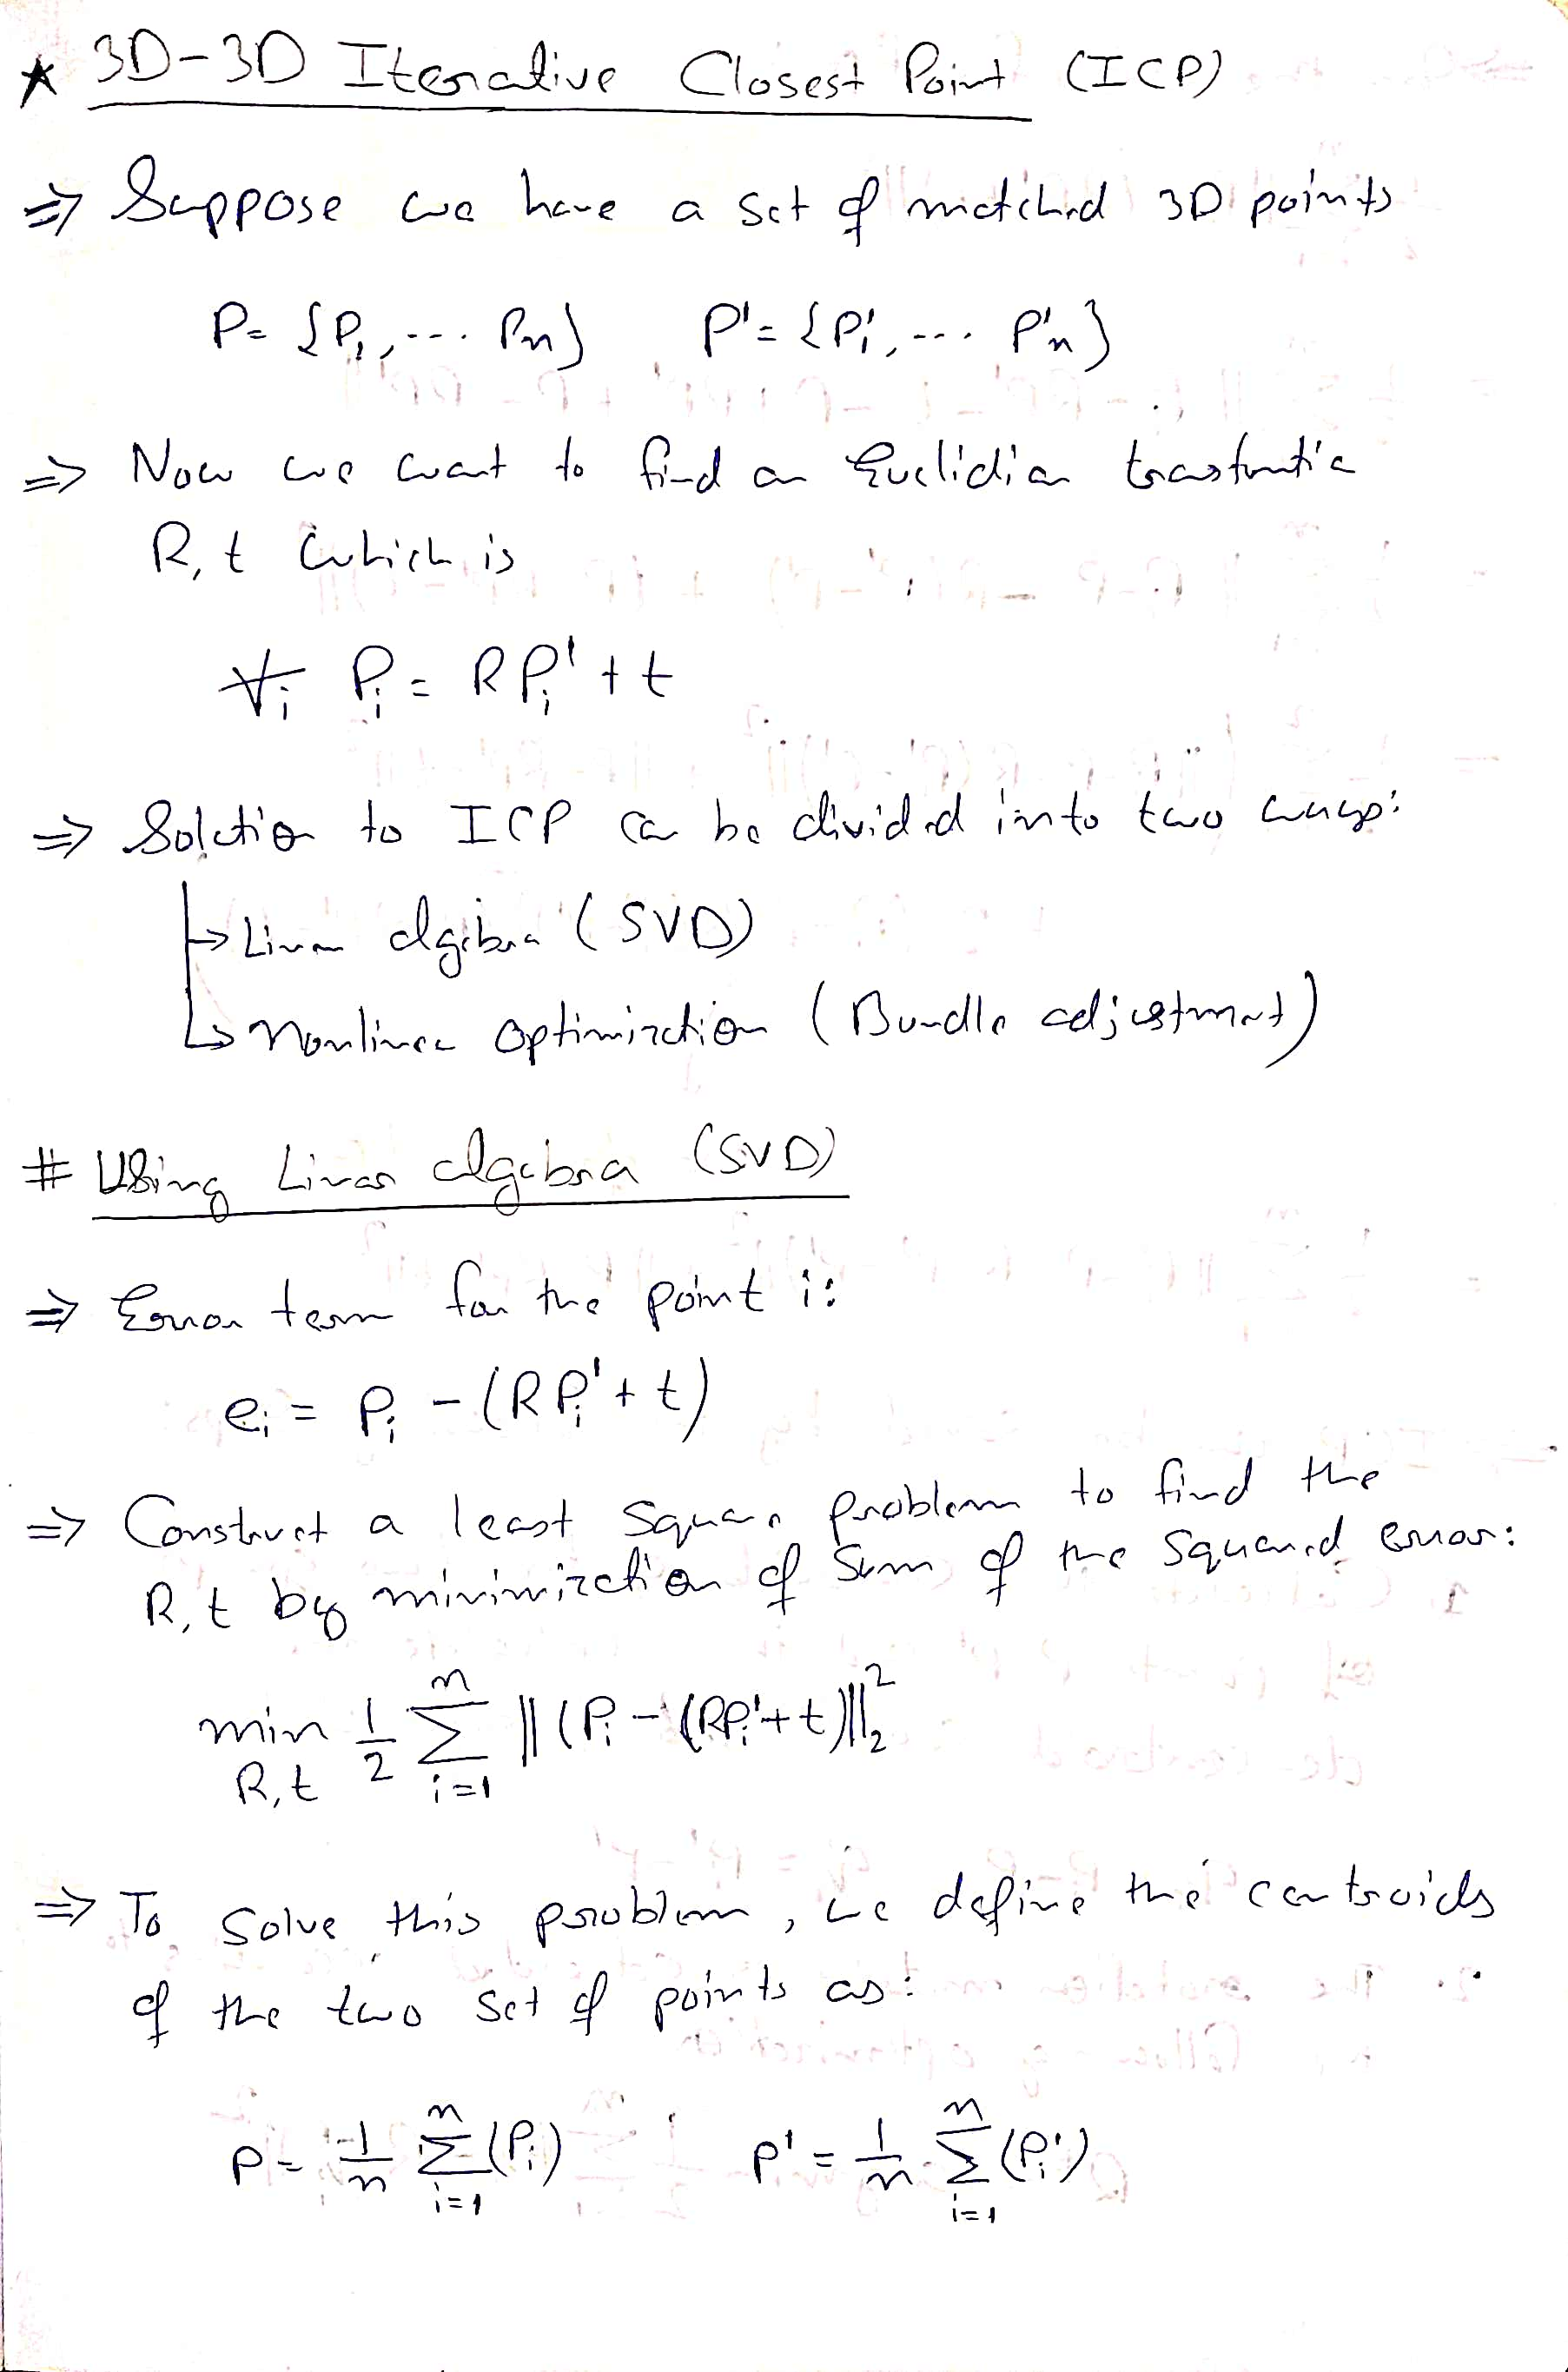 * 3D-3D Iterative Closest Point (ICP)
⇒ Suppose we have a set of matched 3D points
P = {P₁, ... Pn}   P' = {P₁', ... P'n}
⇒ Now we want to find an Euclidian
R, t which is
∀i Pi = RPi' + t
⇒ Solution to ICP can be divided into two ways:
↳ Linear algebra (SVD)
↳ Nonlinear optimization (Bundle adjustment)
# Using Linear algebra (SVD)
⇒ Error term for the point i:
ei = Pi - (RPi' + t)
⇒ Construct a least square problem to find the
R, t by minimization of sum of the squared error:
min R,t 1/2 Σ i=1 n ||(Pi - (RPi' + t)||₂²
⇒ To solve this problem, we define the centroids
of the two set of points as:
P = 1/n Σ i=1 n (Pi)   P' = 1/n Σ i=1 n (Pi')